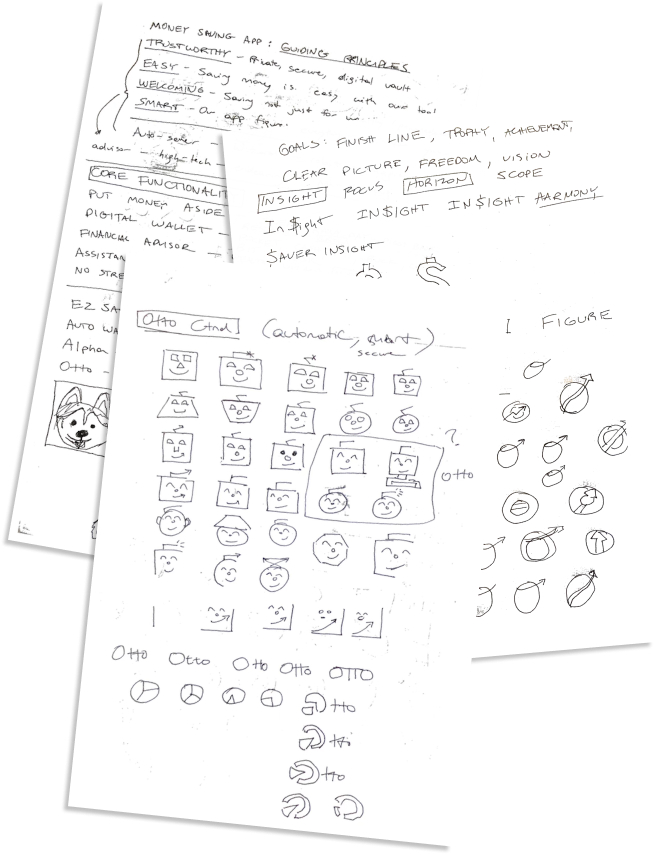 MONEY SAVING APP: GUIDING PRINCIPLES
TRUSTWORTHY - Private, secure, digital vault
EASY - Saving money is easy with our tool
WELCOMING - Saving not just for
SMART - Our app figures
Auto-saver -
advisor - high-tech -
CORE FUNCTIONALIT
PUT MONEY ASIDE
DIGITAL WALLET -
FINANCIAL ADVISOR -
ASSISTAN
NO STRE
EZ SA
AUTO WA
Alpha
Otto -
GOALS: FINISH LINE, TROPHY, ACHIEVEMENT,
CLEAR PICTURE, FREEDOM, VISION
INSIGHT FOCUS HORIZON SCOPE
In$ight IN$IGHT IN$IGHT HARMONY
$AVER INSIGHT
FIGURE
Otto Ctnd (automatic, smart)
secure
?
Otto
Otto Otto Otto Otto OTTO
tto
tto
tto